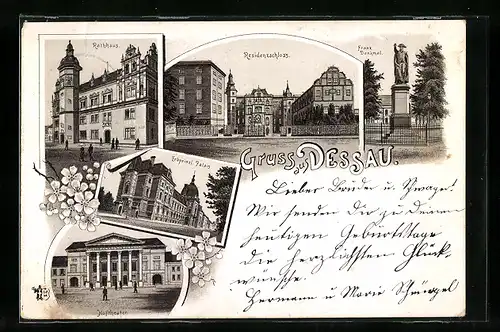 Rathhaus.
Residenzschloss.
Franz
Denkmal.
Erbprinzl. Palais
Gruss aus DESSAU.
Hoftheater
Lieber Bruder u. Schwager!
Wir senden Dir zu Deinem
heutigen Geburtstage
die herzlichsten Glück-
wünsche.
Hermann u. Marie